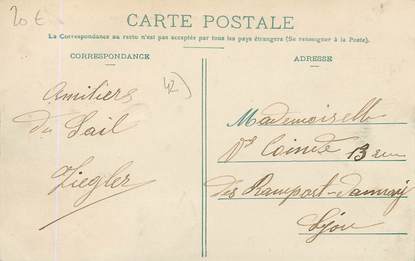 20 €
CARTE POSTALE
La Correspondance au recto n'est pas acceptée par tous les pays étrangers (Se renseigner à la Poste).
CORRESPONDANCE
ADRESSE
42)
Amitiers
du Sail
Ziegler
Mademoiselle
Coinde 13 rue
des Rampart-d'ainay
Lyon